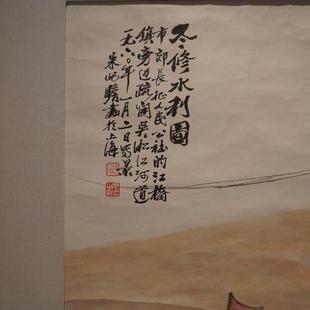 冬修水利圖
市郊長征人民公社的江橋
鎮旁边疏濬吴淞江河道
一九六〇年一月二日写景
朱屺瞻畫於上海